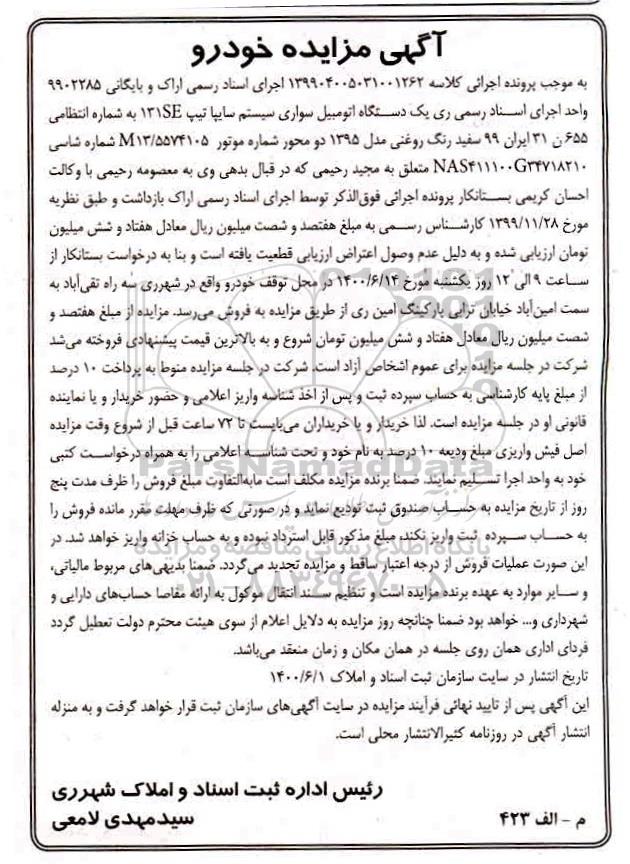 آگهی مزایده خودرو
به موجب پرونده اجرائی کلاسه ۱۳۹۹۰۴۰۰۵۰۳۱۰۰۱۲۶۲ اجرای اسناد رسمی اراک و بایگانی ۹۹۰۲۲۸۵
واحد اجرای اسناد رسمی ری یک دستگاه اتومبیل سواری سیستم سایپا تیپ ۱۳۱SE به شماره انتظامی
۶۵۵ن ۳۱ ایران ۹۹ سفید رنگ روغنی مدل ۱۳۹۵ دو محور شماره موتور M۱۳/۵۵۷۴۱۰۵ شماره شاسی
NAS۴۱۱۱۰۰G۳۴۷۱۸۲۱۰ متعلق به مجید رحیمی که در قبال بدهی وی به معصومه رحیمی با وکالت
احسان کریمی بستانکار پرونده اجرائی فوق‌الذکر توسط اجرای اسناد رسمی اراک بازداشت و طبق نظریه
مورخ ۱۳۹۹/۱۱/۲۸ کارشناس رسمی به مبلغ هفتصد و شصت میلیون ریال معادل هفتاد و شش میلیون
تومان ارزیابی شده و به دلیل عدم وصول اعتراض ارزیابی قطعیت یافته است و بنا به درخواست بستانکار از
ساعت ۹ الی ۱۲ روز یکشنبه مورخ ۱۴۰۰/۶/۱۴ در محل توقف خودرو واقع در شهرری سه راه تقی‌آباد به
سمت امین‌آباد خیابان ترابی پارکینگ امین ری از طریق مزایده به فروش می‌رسد. مزایده از مبلغ هفتصد و
شصت میلیون ریال معادل هفتاد و شش میلیون تومان شروع و به بالاترین قیمت پیشنهادی فروخته می‌شد
شرکت در جلسه مزایده برای عموم اشخاص آزاد است. شرکت در جلسه مزایده منوط به پرداخت ۱۰ درصد
از مبلغ پایه کارشناسی به حساب سپرده ثبت و پس از اخذ شناسه واریز اعلامی و حضور خریدار و یا نماینده
قانونی او در جلسه مزایده است. لذا خریدار و یا خریداران می‌بایست تا ۷۲ ساعت قبل از شروع وقت مزایده
اصل فیش واریزی مبلغ ودیعه ۱۰ درصد به نام خود و تحت شناسه اعلامی را به همراه درخواست کتبی
خود به واحد اجرا تسلیم نمایند. ضمنا برنده مزایده مکلف است مابه‌التفاوت مبلغ فروش را ظرف مدت پنج
روز از تاریخ مزایده به حساب صندوق ثبت تودیع نماید و در صورتی که ظرف مهلت مقرر مانده فروش را
به حساب سپرده ثبت واریز نکند، مبلغ مذکور قابل استرداد نبوده و به حساب خزانه واریز خواهد شد. در
این صورت عملیات فروش از درجه اعتبار ساقط و مزایده تجدید می‌گردد. ضمنا بدیهی‌های مربوط مالیاتی،
و سایر موارد به عهده برنده مزایده است و تنظیم سند انتقال موکول به ارائه مفاصا حساب‌های دارایی و
شهرداری و... خواهد بود ضمنا چنانچه روز مزایده به دلایل اعلام از سوی هیئت محترم دولت تعطیل گردد
فردای اداری همان روی جلسه در همان مکان و زمان منعقد می‌باشد.
تاریخ انتشار در سایت سازمان ثبت اسناد و املاک ۱۴۰۰/۶/۱
این آگهی پس از تایید نهائی فرآیند مزایده در سایت آگهی‌های سازمان ثبت قرار خواهد گرفت و به منزله
انتشار آگهی در روزنامه کثیرالانتشار محلی است.
رئیس اداره ثبت اسناد و املاک شهرری
سیدمهدی لامعی
م - الف ۴۲۳
ParsNamadData
پایگاه اطلاع رسانی مناقصه و مزایده
۰۲۱-۸۸۳۴۹۶۷۰-۵